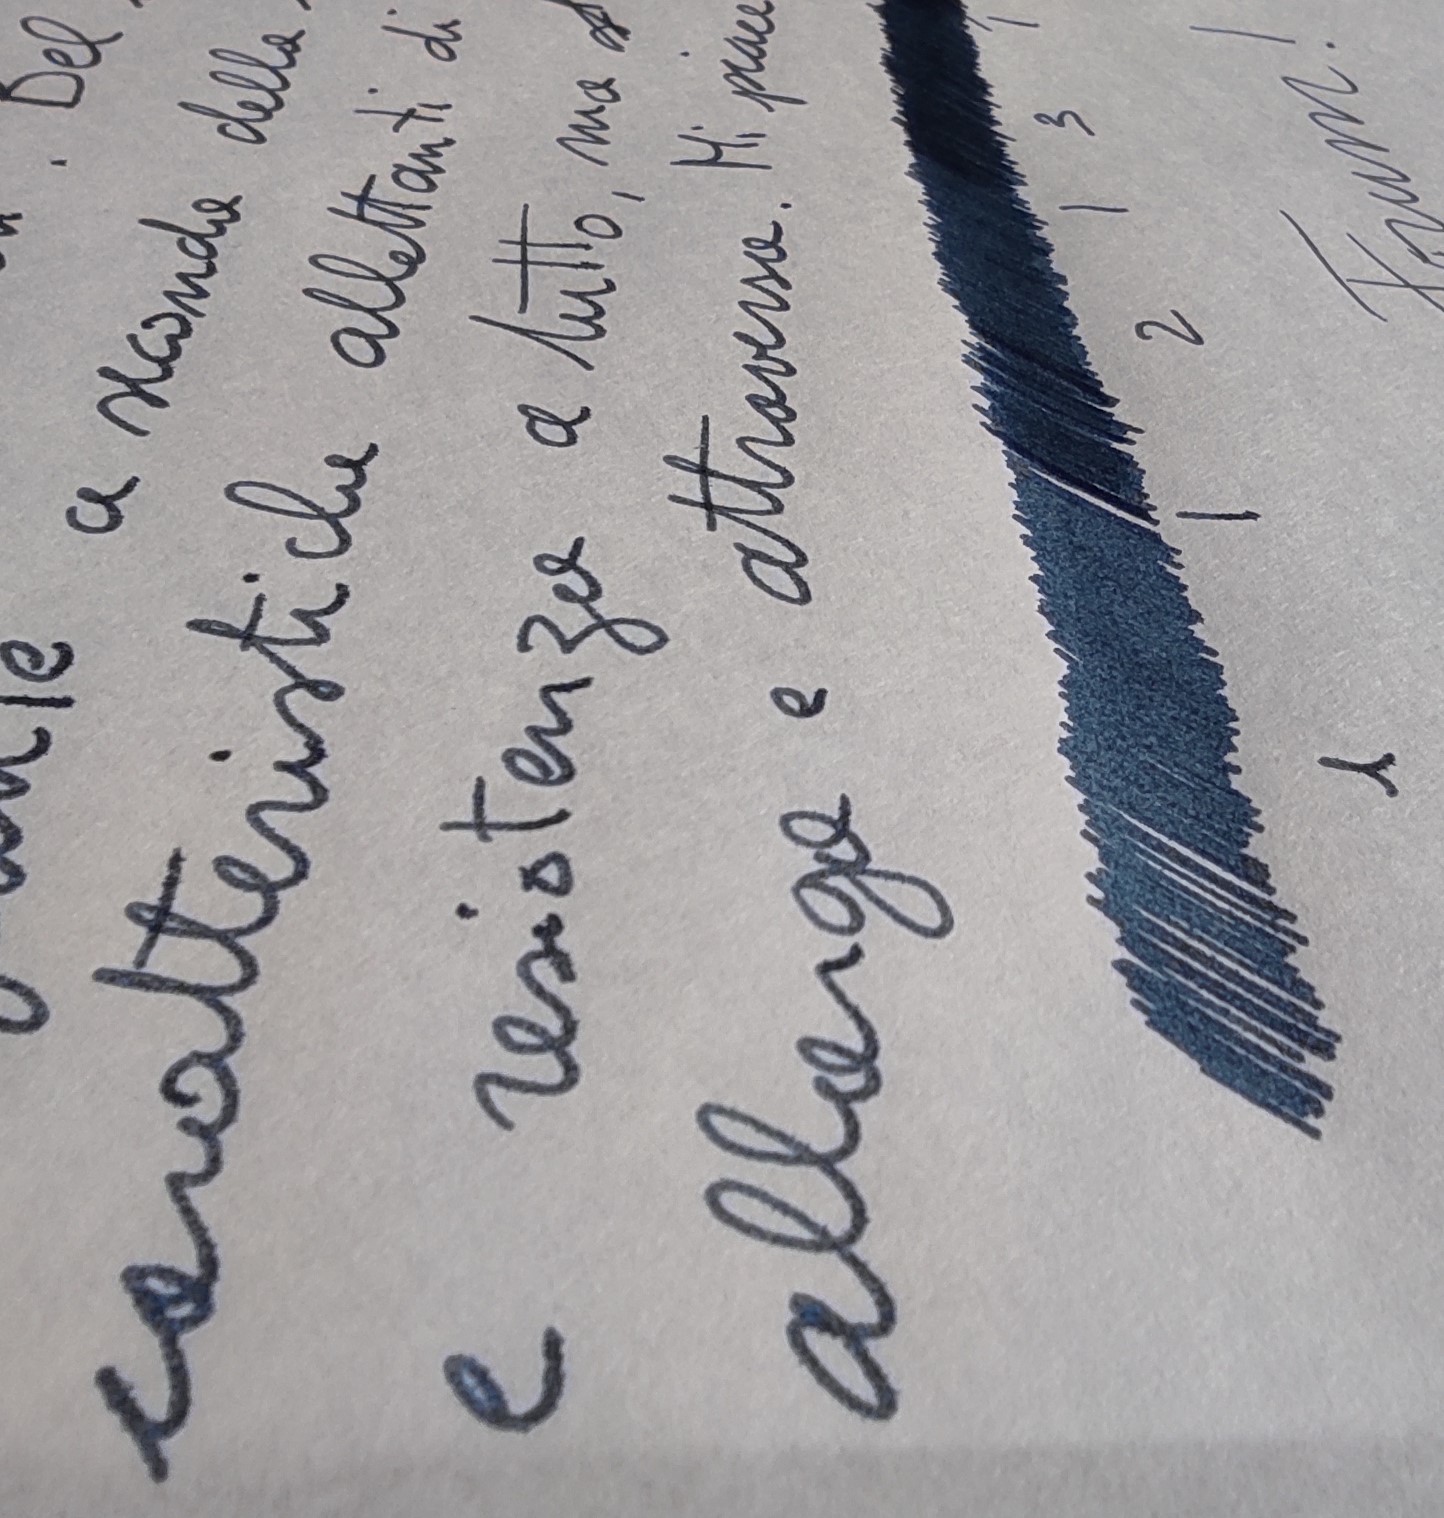 Del
a seconda della
caratteristiche allettanti di
e resistenza a tutto, ma
allunga e attraversa. Mi piace
1 1 2 1 3 1